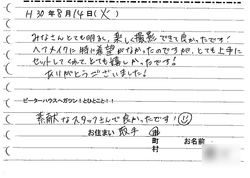 H30年8月14日(火)
みなさんとても明るく、楽しく撮影できて良かったです!
ヘアメイクに特に希望がなかったのですが、とても上手に
セットしてくれて、とても嬉しかったです!
ありがとうございました!
ピーターハウスへガツン!とひとこと!!
素敵なスタッフさんで良かったです!
お住まい 取手 市 町 村
お名前